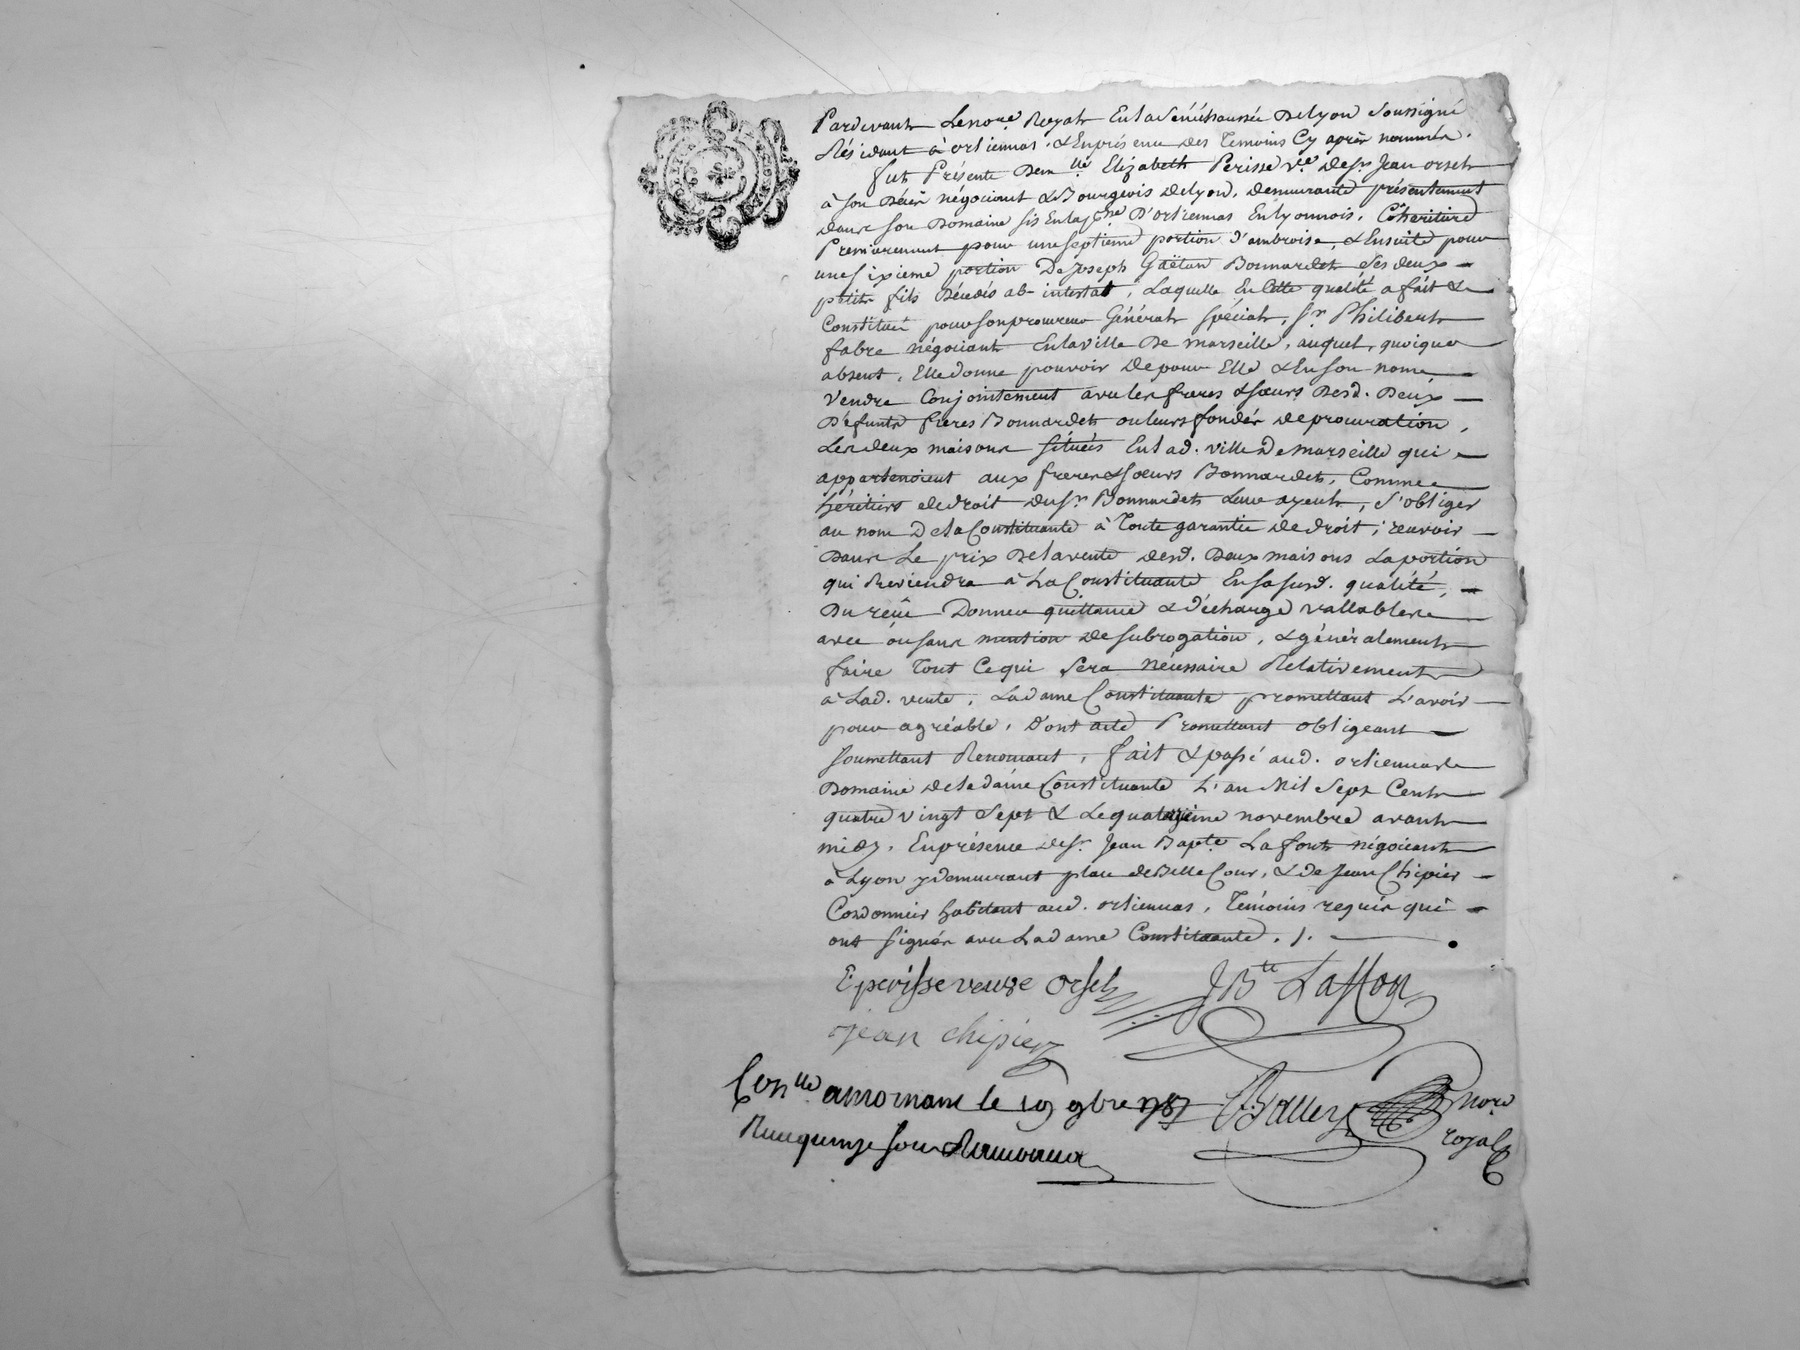 Pardevant Le no.re Royal En la Sénéchaussée De Lyon Soussigné
Résidant à ortiennas. & En présence des Temoins Cy après nommés.
fut Présente Dem.lle Elizabeth Perisse v.e de S.r Jean orsel
à son décès négociant & Bourgeois de Lyon, demeurante présentement
dans son Domaine sis En la p.sse D'ortiennas En lyonnois, Cohéritière
Premierement pour une septieme portion d'ambroise, & Ensuite pour
une sixieme portion De Joseph Gaëtan Bonnardel ses deux
petits fils Décédés ab-intestat, Laquelle En Cette qualité a fait &
Constitué pour son procureur Général & spécial, S.r Philibert
fabre négociant En la ville De marseille, auquel, quoique
absent, Elle donne pouvoir de pour Elle & En son nom,
Vendre Conjointement avec les freres & sœurs Desd. Deux
Défunts freres Bonnardel ou leurs fondés de procuration,
Les deux maisons situées En lad. ville De marseille qui
appartenoient aux freres & sœurs Bonnardel, Comme
héritiers de droit du S.r Bonnardel Leur ayeul, s'obliger
au nom De la Constituante à Toute garantie de droit; recevoir
Dans Le prix De la vente desd. Deux maisons La portion
qui Reviendra à La Constituante En sa susd. qualité,
Du reçu Donner quittance & décharge vallables
avec ou sans mention de subrogation, & généralement
faire Tout Ce qui sera nécessaire Relativement
à Lad. vente, La dame Constituante promettant L'avoir
pour agréable, D'ont acte Promettant obligeant
soumettant Renonçant, fait & passé aud. ortiennas
Domaine de la dame Constituante L'an Mil Sept Cent
quatre vingt Sept & Le quatorzieme novembre avant
midy, En présence de S.r Jean Bapt.e Lafont négociant
à Lyon y demeurant place de Belle Cour, & de Jean Chipier
Cordonnier habitant aud. ortiennas, Témoins requis qui
ont signés avec La dame Constituante. /.
E perisse veuve Orsel JB.te Laffon
jean chipier
Con.lle a mornant le 19 9bre 1787 no.re
Reçu quinze sous royal